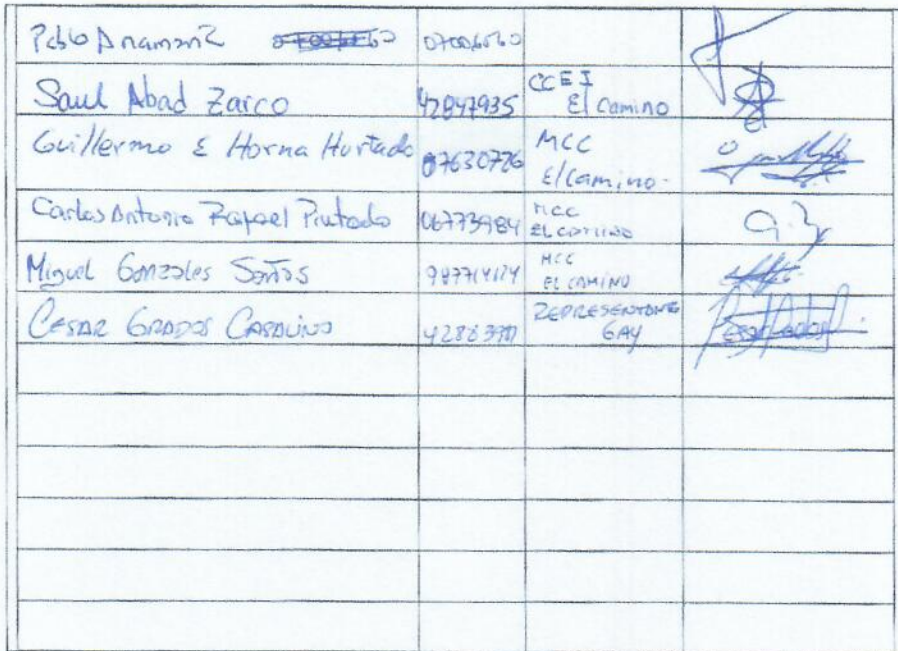 Pablo Anamaría 07006560 07006560
Saul Abad Zarco 42847935 CCEI
El Camino
Guillermo E Horna Hurtado 07630726 MCC
El Camino.
Carlos Antonio Rafael Pintado 06773984 MCC
EL CAMINO
Miguel Gonzales Santos MCC
EL CAMINO
CESAR GRADOS CASALINO REPRESENTANTE
GAY